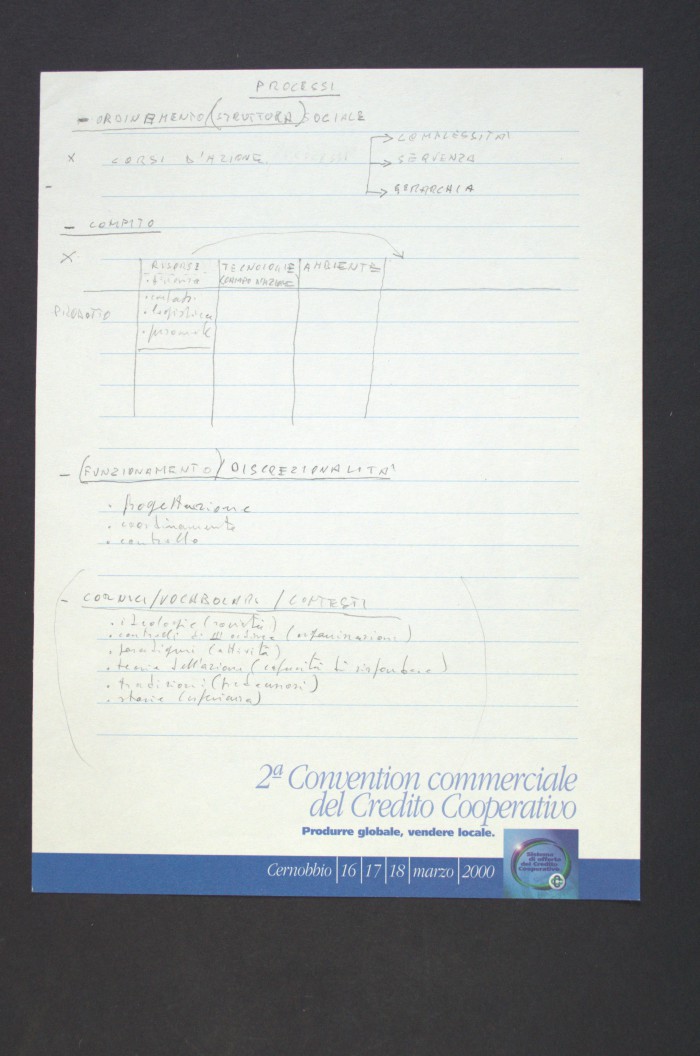 PROCESSI
- ORDINAMENTO (STRUTTURA) SOCIALE
→ COMPLESSITA'
x CORSI D'AZIONE → SEQUENZA
→ GERARCHIA
- COMPITO
x
RISORSE TECNOLOGIE AMBIENTE
CAMPO D'AZIONE
· contatti
PRODOTTO · logistica
· personale
- (FUNZIONAMENTO) / DISCREZIONALITA'
· progettazione
· coordinamento
· controllo
- CORNICI / VOCABOLARI / CONTESTI
· ideologie (società)
· controlli di III ordine (organizzazioni)
· paradigmi (attività)
· teorie dell'azione (capacità di rispondere)
· tradizioni (predecessori)
· storie (esperienza)
2ª Convention commerciale
del Credito Cooperativo
Produrre globale, vendere locale.
Cernobbio | 16 | 17 | 18 | marzo | 2000
Sistema
di offerta
del Credito
Cooperativo